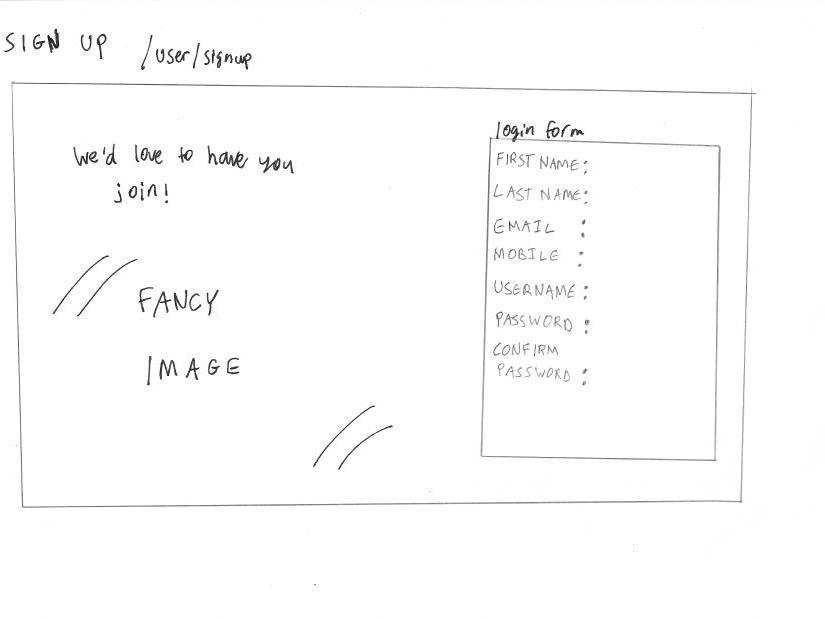 SIGN UP /user/signup
We'd love to have you
join!
FANCY
IMAGE
login form
FIRST NAME:
LAST NAME:
EMAIL :
MOBILE :
USERNAME:
PASSWORD:
CONFIRM
PASSWORD: